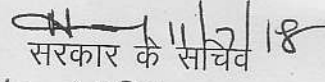 11/7/18
सरकार के सचिव